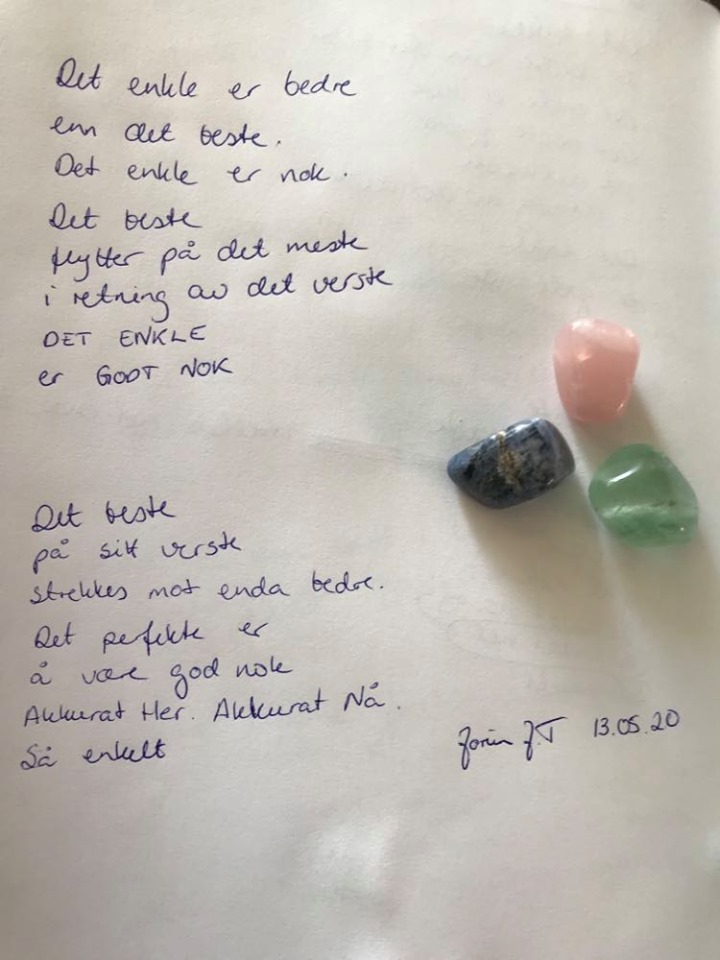 Det enkle er bedre
enn det beste.
Det enkle er nok.
Det beste
flytter på det meste
i retning av det verste
DET ENKLE
er GODT NOK
Det beste
på sitt verste
strekkes mot enda bedre.
Det perfekte er
å være god nok
Akkurat Her. Akkurat Nå.
Så enkelt
J.T 13.05.20